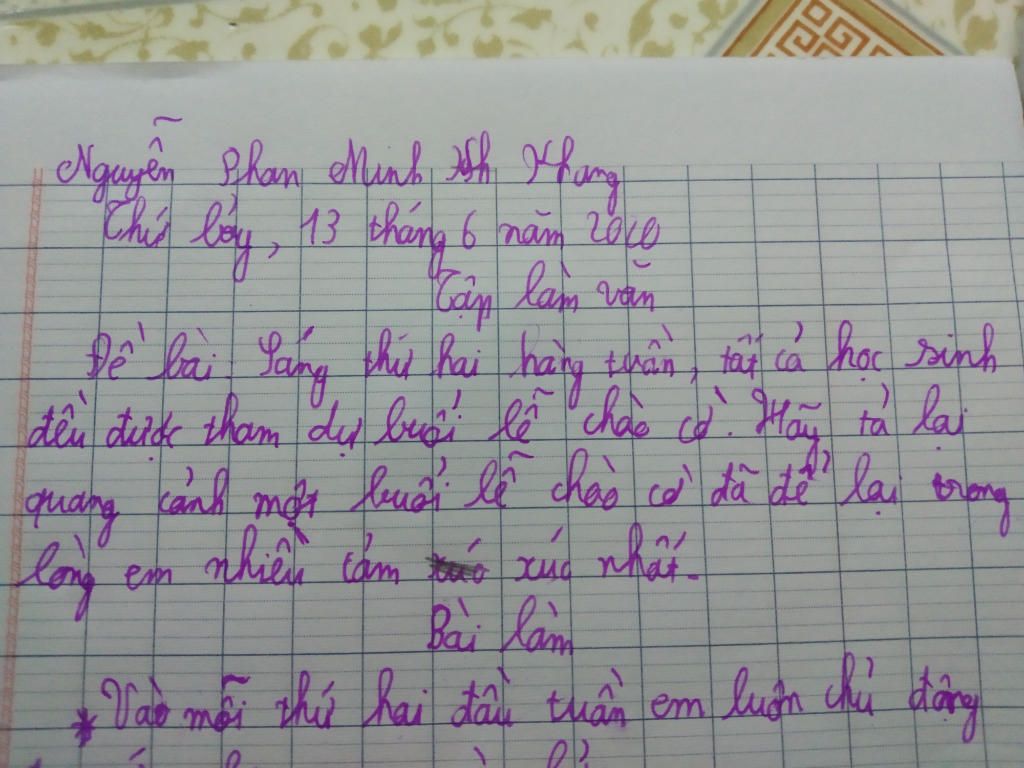 Nguyễn Phan Minh Khang
Thứ bảy, 13 tháng 6 năm 2020
Tập làm văn
Đề bài: Sáng thứ hai hàng tuần, tất cả học sinh
đều được tham dự buổi lễ chào cờ. Hãy tả lại
quang cảnh một buổi lễ chào cờ đã để lại trong
lòng em nhiều cảm xúc nhất.
Bài làm
* Vào mỗi thứ hai đầu tuần em luôn chủ động